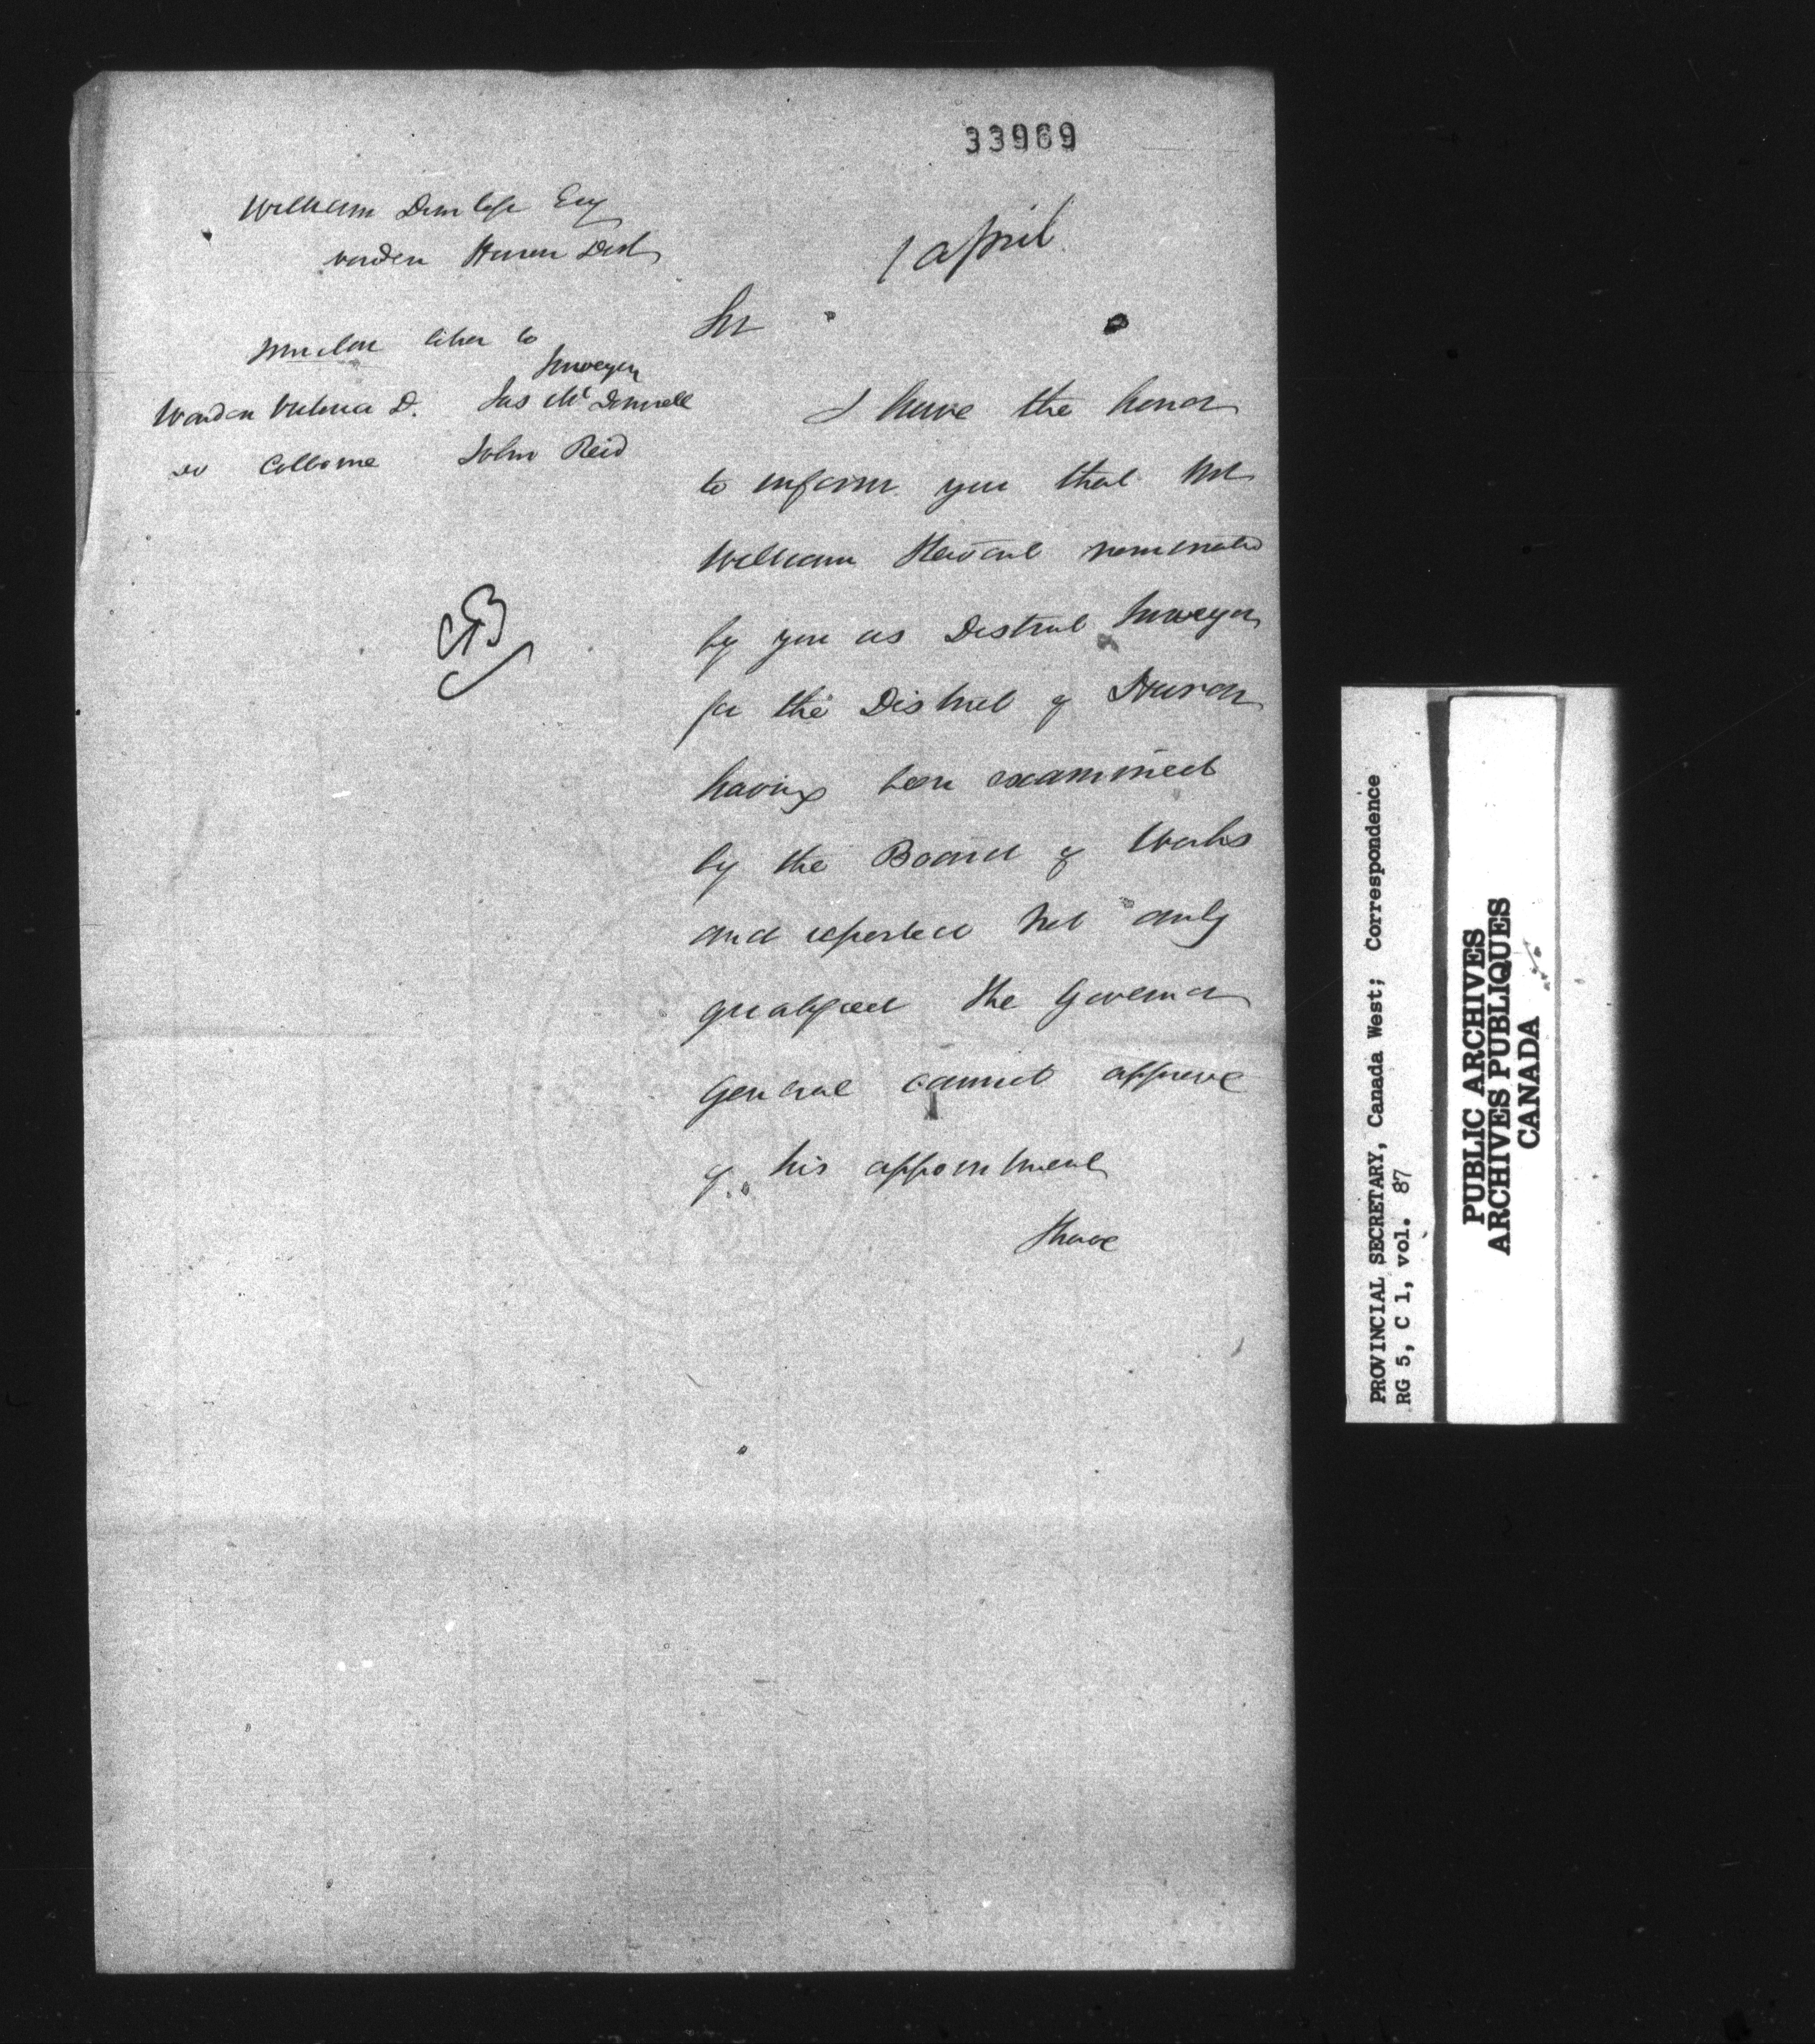 33969
William Dunlop Esq
warden Huron Dist
1 april
Similar letter to
Surveyor
Warden Victoria D. Jas McDonnell
do Colborne John Reid
Sir
I have the honor
to inform you that Mr
William nominated
by you as District Surveyor
for the District of Huron
having been examined
by the Board of Works
and reported not duly
qualified the Governor
General cannot approve
of his appointment
I have
PROVINCIAL SECRETARY, Canada West; Correspondence
RG 5, C 1, vol. 87
PUBLIC ARCHIVES
ARCHIVES PUBLIQUES
CANADA